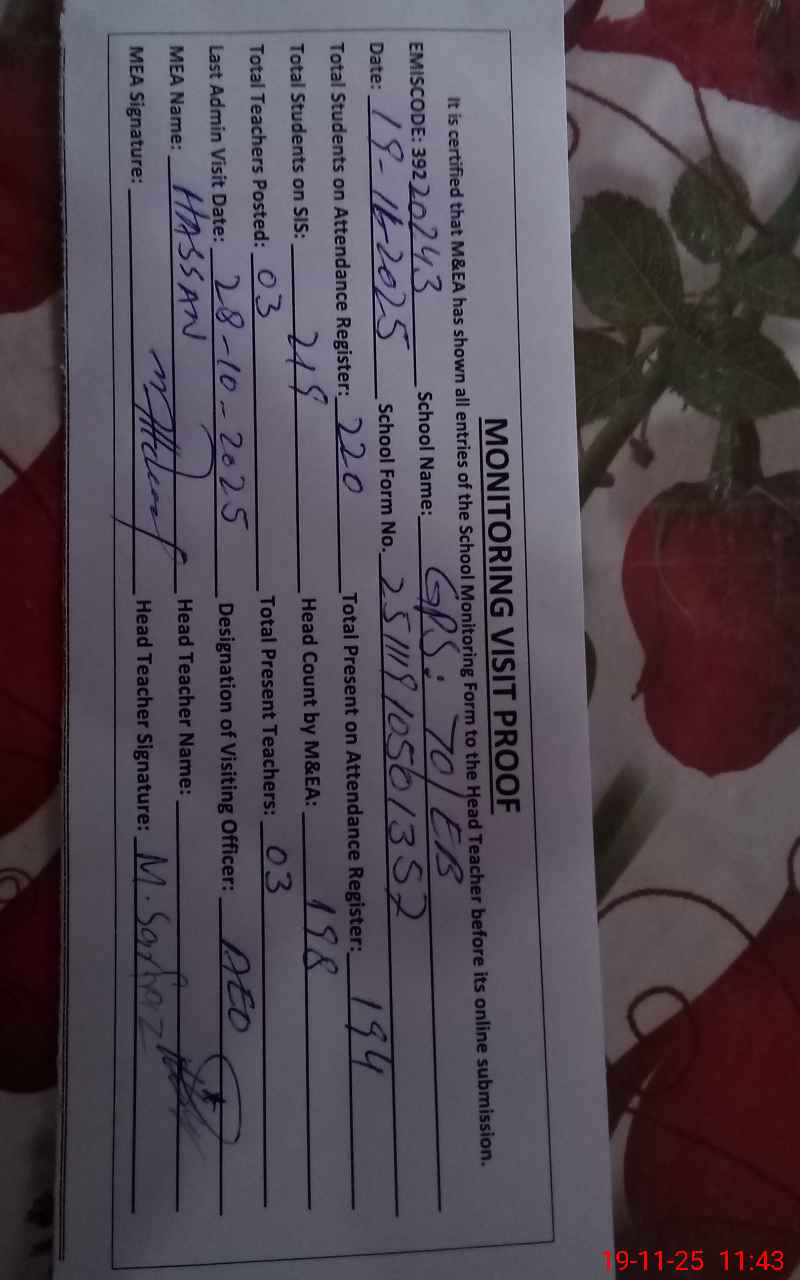 MONITORING VISIT PROOF
It is certified that M&EA has shown all entries of the School Monitoring Form to the Head Teacher before its online submission.
EMISCODE: 39220243 School Name: GPS: 70/EB
Date: 19-11-2025 School Form No. 25111910501352
Total Students on Attendance Register: 220 Total Present on Attendance Register: 194
Total Students on SIS: 219 Head Count by M&EA: 198
Total Teachers Posted: 03 Total Present Teachers: 03
Last Admin Visit Date: 28-10-2025 Designation of Visiting Officer: AEO
MEA Name: HASSAN Head Teacher Name:
MEA Signature: Head Teacher Signature: M. Sarfraz
19-11-25 11:43